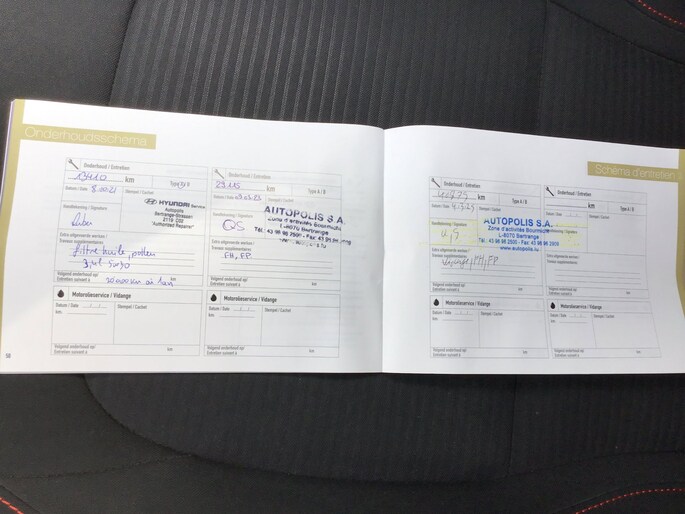 Onderhoudsschema
Onderhoud / Entretien
km
Type A / B
Datum / Date
Stempel / Cachet
HYUNDAI Service
Autopolis
Bertrange-Strassen
Authorised Repairer
Handtekening / Signature
Extra uitgevoerde werken /
Travaux supplémentaires
filtre huile,
Volgend onderhoud op/
Entretien suivant à
km
Motorolieservice / Vidange
Datum / Date
Stempel / Cachet
km
Volgend onderhoud op/
Entretien suivant à
km
Onderhoud / Entretien
29.115
km
Type A / B
Datum / Date
Stempel / Cachet
AUTOPOLIS S.A.
Zone d'activités Bourmicht
L-8070 Bertrange
Handtekening / Signature
QS
Extra uitgevoerde werken /
Travaux supplémentaires
FH, FP
Volgend onderhoud op/
Entretien suivant à
km
Motorolieservice / Vidange
Datum / Date
Stempel / Cachet
km
Volgend onderhoud op/
Entretien suivant à
km
Schéma d'entretien
Onderhoud / Entretien
km
Type A / B
Datum / Date
Stempel / Cachet
AUTOPOLIS S.A.
Zone d'activités Bourmicht
L-8070 Bertrange
Tél.: 43 96 96 2500 - Fax: 43 96 96
www.autopolis.lu
Handtekening / Signature
Extra uitgevoerde werken /
Travaux supplémentaires
FH, FP
Volgend onderhoud op/
Entretien suivant à
km
Motorolieservice / Vidange
Datum / Date
Stempel / Cachet
km
Volgend onderhoud op/
Entretien suivant à
km
Onderhoud / Entretien
km
Type A / B
Datum / Date
Stempel / Cachet
Extra uitgevoerde werken /
Travaux supplémentaires
Volgend onderhoud op/
Entretien suivant à
km
Motorolieservice / Vidange
Datum / Date
Stempel / Cachet
km
Volgend onderhoud op/
Entretien suivant à
km